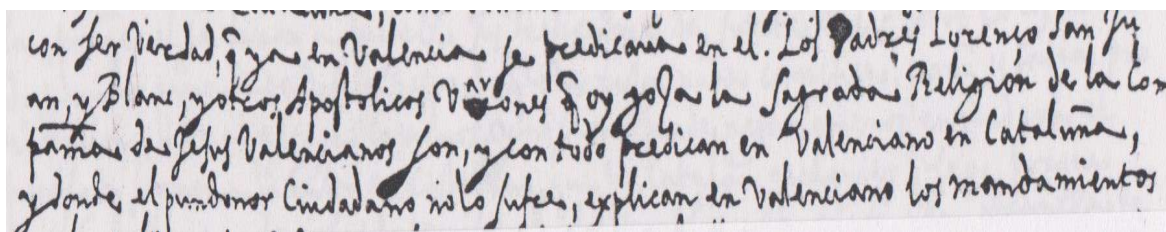 con ser verdad, q̃ ya en Valencia se predicaua en el. Los Padres Lorenço San Ju
an, y Blanc, y otros Apostolicos Varones q̃ oy goza la Sagrada Religión de la Com
pam̃a de Jesus Valencianos son, y con todo predican en Valenciano en Cataluña,
y donde el pundonor Ciudadano no lo sufre, explican en Valenciano los mandamientos